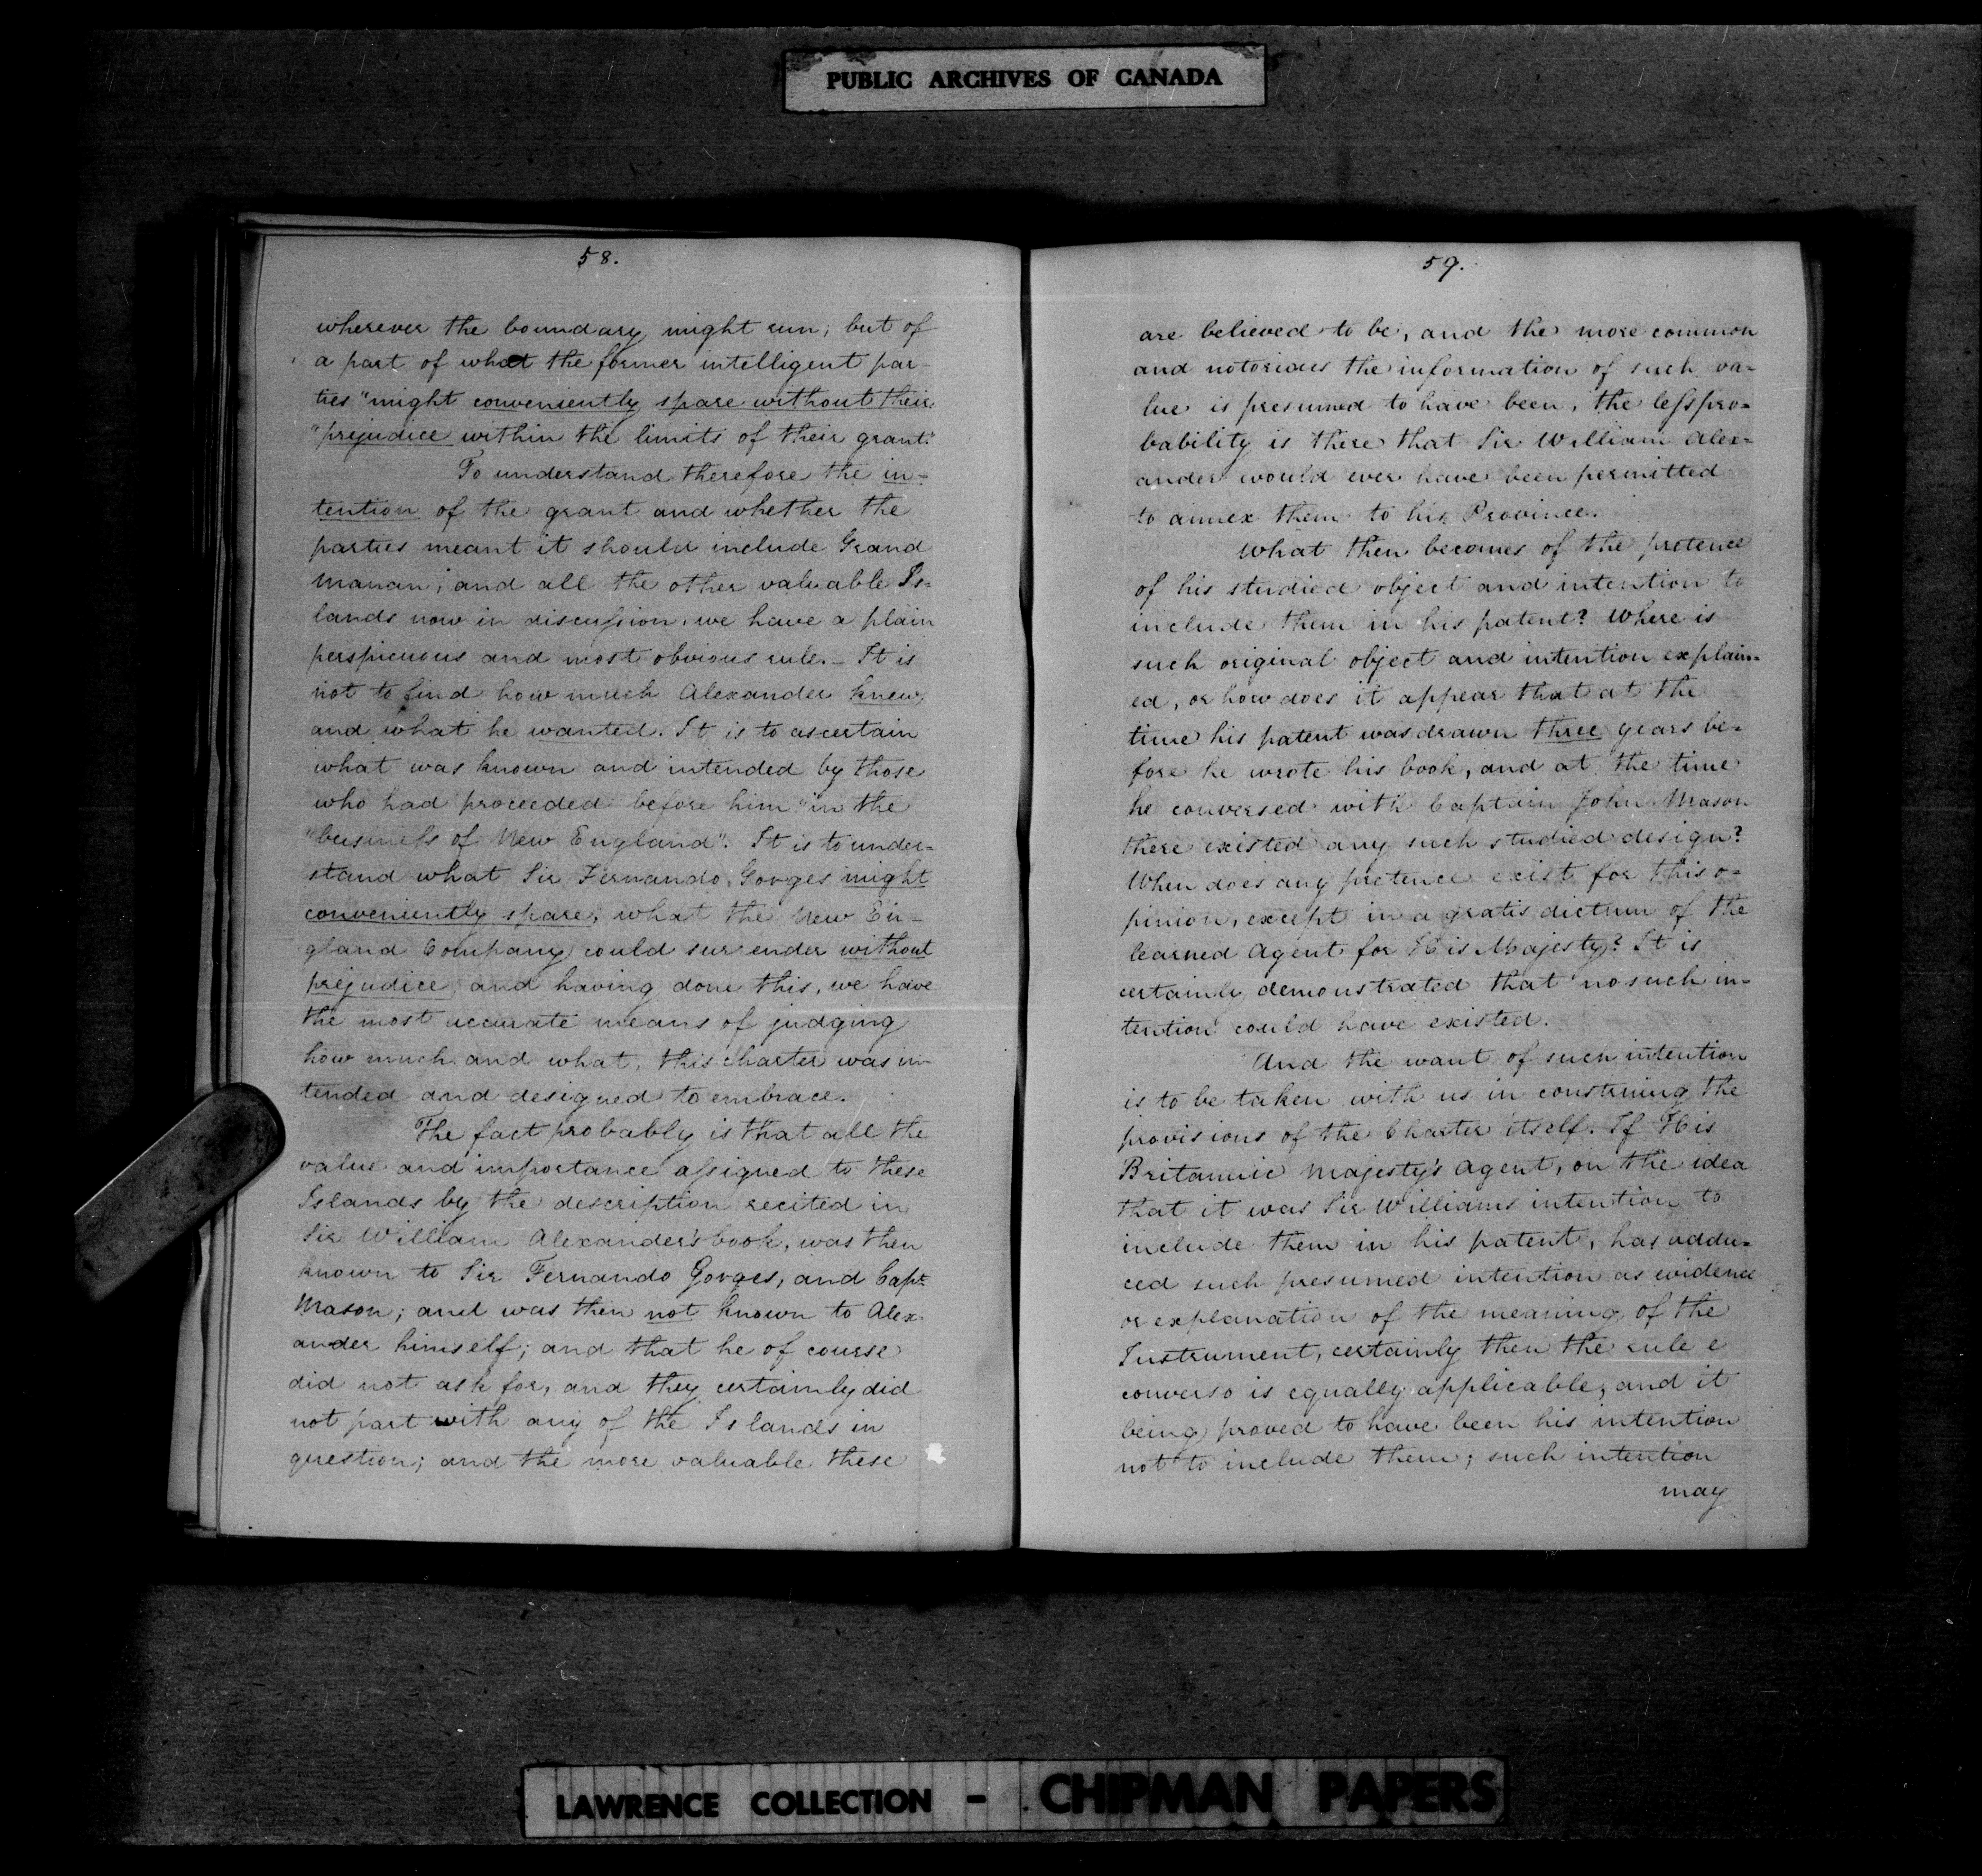 PUBLIC ARCHIVES OF CANADA
58.
wherever the boundary might run; but of
a part of what the former intelligent par-
ties "might conveniently spare without their
"prejudice within the limits of their grant."
To understand therefore the in-
tention of the grant and whether the
parties meant it should include Grand
Manan; and all the other valuable Is-
lands now in discussion, we have a plain
perspicuous and most obvious rule. - It is
not to find how much Alexander knew,
and what he wanted. It is to ascertain
what was known and intended by those
who had proceeded before him "in the
"business of New England". It is to under-
stand what Sir Fernando Gorges might
conveniently spare; what the New En-
gland Company could surrender without
prejudice, and having done this, we have
the most accurate means of judging
how much and what, this charter was in-
tended and designed to embrace.
The fact probably is that all the
value and importance assigned to these
Islands by the description recited in
Sir William Alexander's book, was then
known to Sir Fernando Gorges, and Capt
Mason; and was then not known to Alex-
ander himself; and that he of course
did not ask for, and they certainly did
not part with any of the Islands in
question; and the more valuable these
59.
are believed to be, and the more common
and notorious the information of such va-
lue is presumed to have been, the less pro-
bability is there that Sir William Alex-
ander would ever have been permitted
to annex them to his Province.
What then becomes of the pretence
of his studied object and intention to
include them in his patent? Where is
such original object and intention explain-
ed, or how does it appear that at the
time his patent was drawn three years be-
fore he wrote his book, and at the time
he conversed with Captain John Mason
there existed any such studied design?
When does any pretence exist for this o-
pinion, except in a gratis dictum of the
learned Agent for His Majesty? It is
certainly demonstrated that no such in-
tention could have existed.
And the want of such intention
is to be taken with us in construing the
provisions of the Charter itself. If His
Britannic Majesty's Agent, on the idea
that it was Sir Williams intention to
include them in his patent, has addu-
ced such presumed intention as evidence
or explanation of the meaning of the
Instrument, certainly then the rule e
converso is equally applicable, and it
being proved to have been his intention
not to include them; such intention
may
LAWRENCE COLLECTION - CHIPMAN PAPERS